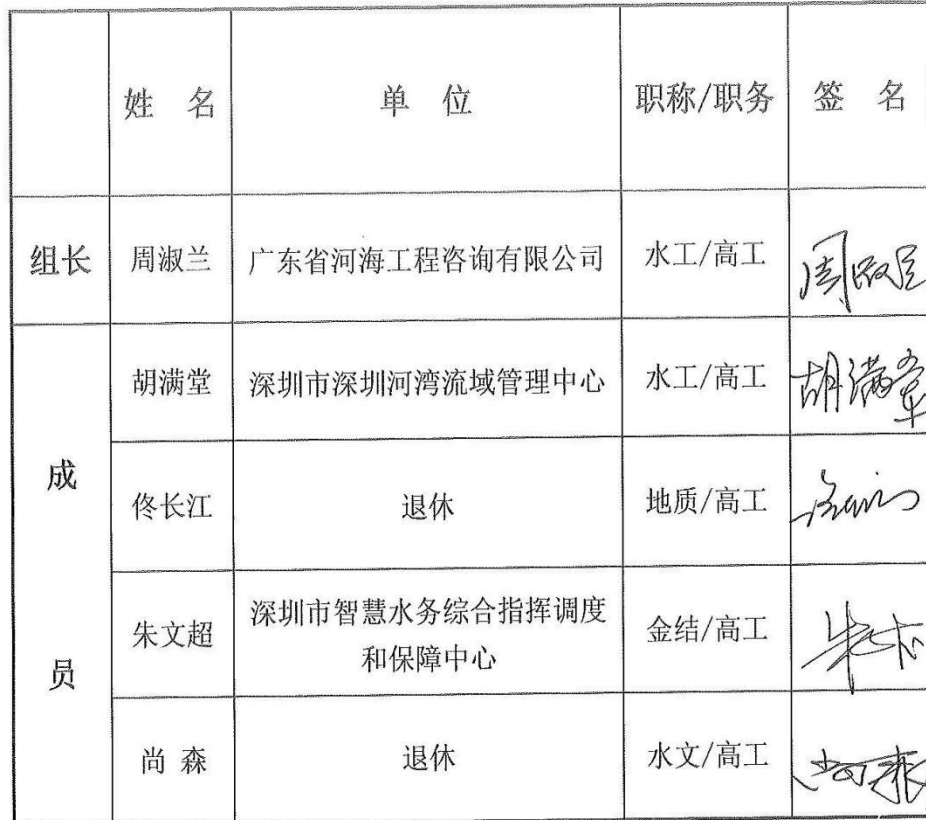 姓 名 单 位 职称/职务 签 名
组长 周淑兰 广东省河海工程咨询有限公司 水工/高工
胡满堂 深圳市深圳河湾流域管理中心 水工/高工 胡满堂
成 佟长江 退休 地质/高工
朱文超 深圳市智慧水务综合指挥调度 金结/高工
和保障中心
员
尚 森 退休 水文/高工 尚森